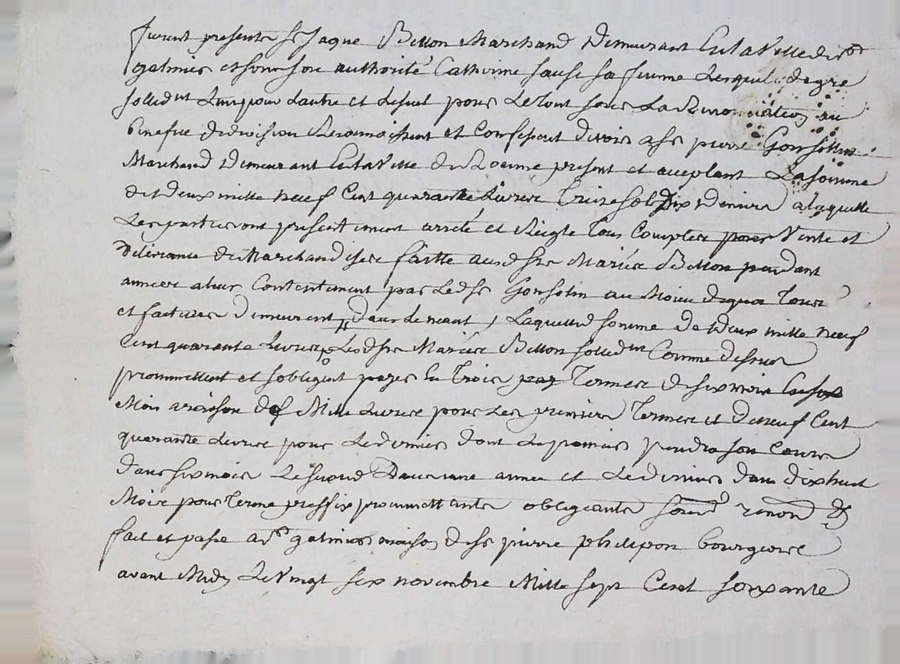 furent presents Sr Jaque Billon Marchand Demeurant En la Ville de St
galmier et sous son authorité Catherine sa femme Lesquels de gre
sollidt Lun pour Lautre et Lesuel pour Letout sous La Renonciation au
benefice de division Reconnaissent et Confessent devoir a Sr pierre Gonsolin
Marchand Demeurant En la Ville de present et aceptant La somme
de deux mille neuf Cent quarante Livres Treize sols Dix Deniers a laquelle
Les parties ont presentement arrêté et Reigle Tous Comptes pour Vente et
Délivrance de Marchandises faitte ausd Srs Mariés Billon pendant
années a leur Contentement par Led Sr Gonsolin au Moien de quoi Tous
et factures Demeurent Laquelle somme de Deux mille neuf
Cent quarante Livres Lesd Srs Mariés Billon sollidt Comme dessus
promettent et sobligent payer En Trois Termes de six mois
Mois a raison de Mille Livres pour Les premiers Termes et De neuf Cent
quarante Livres pour Le dernier dont Le premier prendra son Cours
dans six mois Le second Dans une annee et Le dernier dans dix huit
Mois pour Terme preffix promettants obligeants soumt renond &
fait et passé a St galmier maison de Sr pierre philipon bourgeois
avant Midy Le Vingt six novembre Mille sept Cent soixante